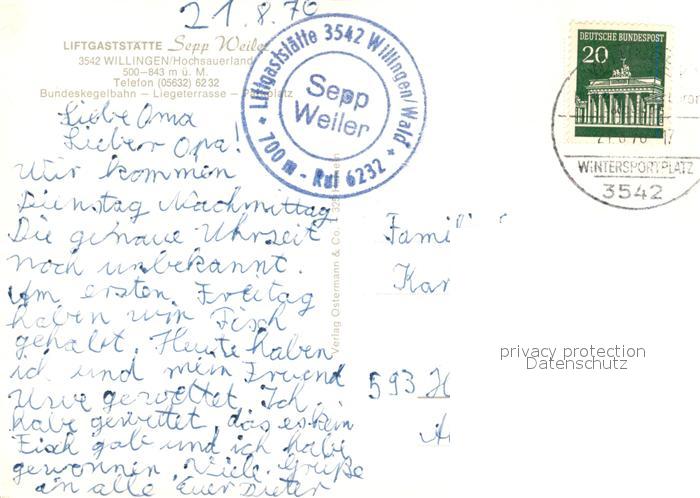 21.8.70
LIFTGASTSTÄTTE Sepp Weiler
3542 WILLINGEN/Hochsauerland
500—843 m ü. M.
Telefon (05632) 6232
Bundeskegelbahn — Liegeterrasse — Parkplatz
Liftgaststätte 3542 Willingen/Wald
Sepp
Weiler
* 700 m - Ruf 6232 *
DEUTSCHE BUNDESPOST
20
21.8.70-17
WINTERSPORTPLATZ
3542
Liebe Oma
Lieber Opa!
Wir kommen
Dienstag Nachmittag
Die genaue Uhrzeit
noch unbekannt.
Am ersten Freitag
haben wir Fisch
gehabt. Heute haben
ich und mein Freund
Uwe gewettet. Ich
habe gewettet, das es kein
Fisch gab und ich habe
gewonnen Viele Grüße
an alle Euer Dieter
Verlag Ostermann & Co.
Fami
Kar
593 H
privacy protection
Datenschutz